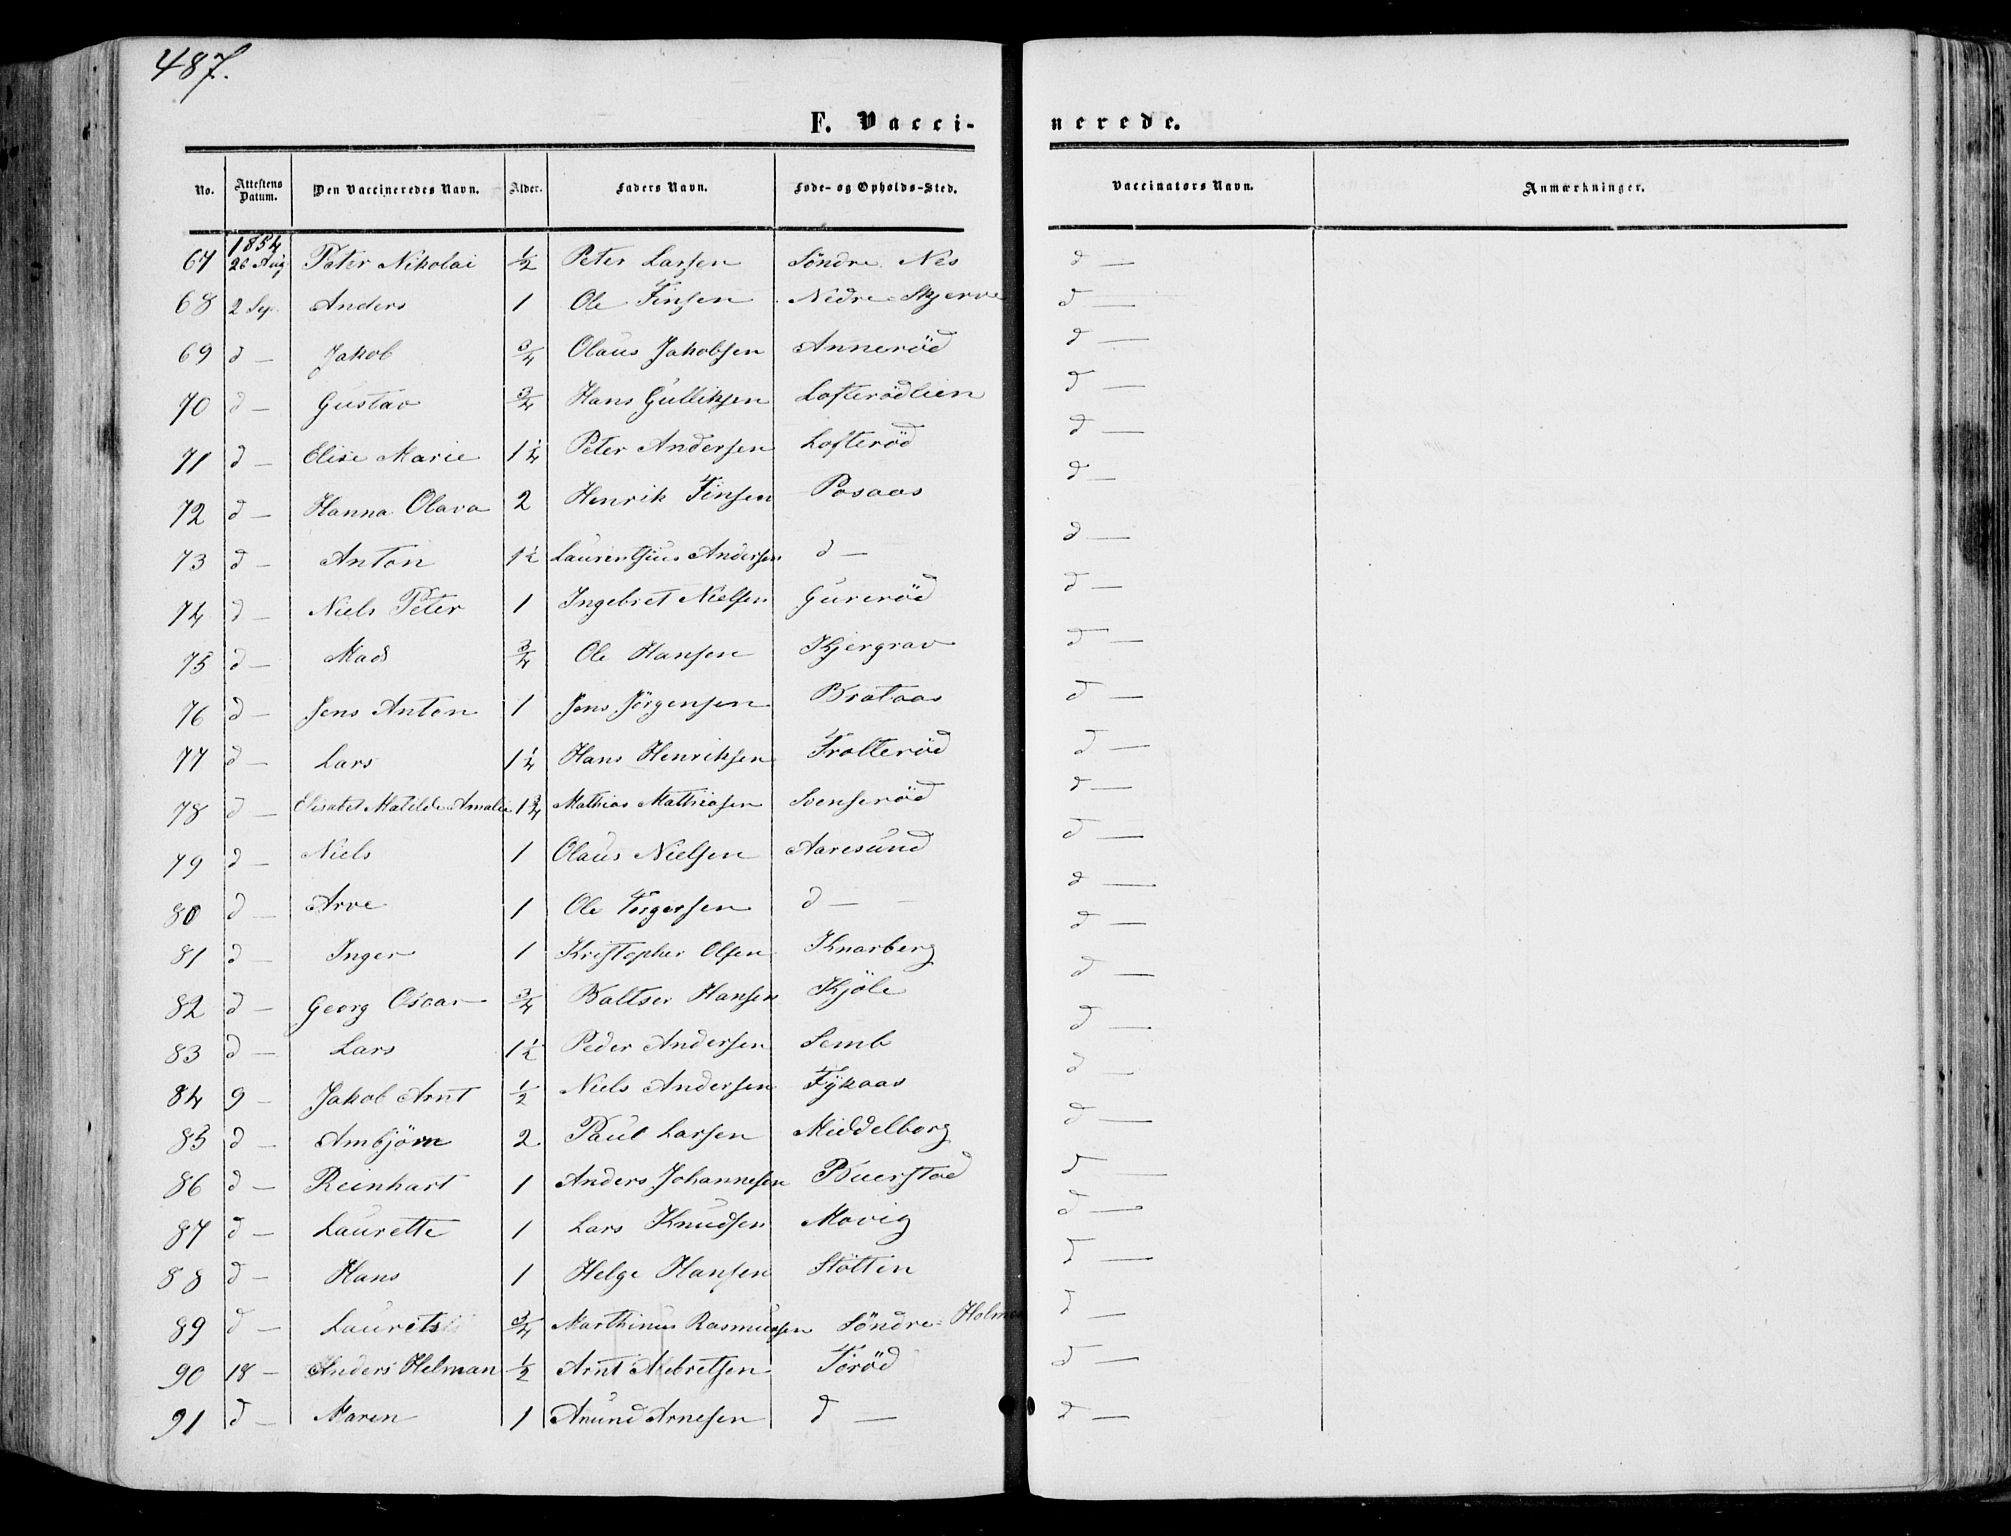 487.
F. Vaccinerede.
No. Attestens Datum. Den Vaccineredes Navn. Alder. Faders Navn. Føde- og Opholds-Sted. Vaccinators Navn. Anmærkninger.
1854
67 26 Aug Peter Nikolai ½ Peter Larsen Söndre Nes d —
68 2 Sep. Anders 1 Ole Finsen Nedre Skjerve d —
69 d — Jakob ¾ Olaus Jakobsen Annerød d —
70 d — Gustav ¾ Hans Gulliksen Lofterødlien d —
71 d — Elise Marie 1¼ Peter Andersen Lofterød d —
72 d — Hanna Olava 2 Henrik Finsen Posaas d —
73 d — Anton 1½ Laurentsius Andersen d — d —
74 d — Niels Peter 1 Ingebret Nielsen Gurerød d —
75 d — Mads ¾ Ole Hansen Kjergrav d —
76 d — Jens Anton 1 Jens Jörgensen Brataas d —
77 d — Lars 1¼ Hans Henriksen Trolterød d —
78 d — Elisabet Matilde Amalie 1¾ Mathias Mathiasen Svenserød d —
79 d — Niels 1 Olaus Nielsen Aaresund d —
80 d — Arve 1 Ole Torgersen d — d —
81 d — Inger 1 Kristopher Olsen Knarberg d —
82 d — Georg Oscar ¾ Baltser Hansen Kjöle d —
83 d — Lars 1½ Peder Andersen Semb d —
84 9 — Jakob Arnt ½ Niels Andersen Fykaas d —
85 d — Ambjörn 2 Paul Larsen Middelborg d —
86 d — Reinhart 1 Anders Johannesen Buerstad d —
87 d — Laurette 1 Lars Knudsen Movig d —
88 d — Hans 1 Helge Hansen Stöttin d —
89 d — Laurits ¾ Marthinus Rasmussen Söndre Holmen d —
90 18 — Anders Helman ½ Arnt Aebretsen Torød d —
91 d — Maren 1 Anund Arnesen d — d —